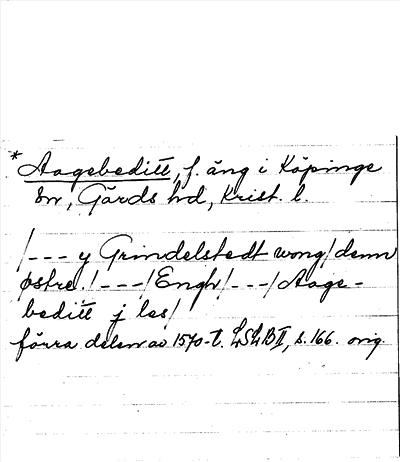 * Aagebeditt, f. äng i Köpinge
sn, Gärds hd, Krist. l.
/--- y Grindelstedt wong/denn
østre./---/Engh/---/Aage-
beditt j les/
förra delen av 1570-t. LSLB II, s. 166. orig.